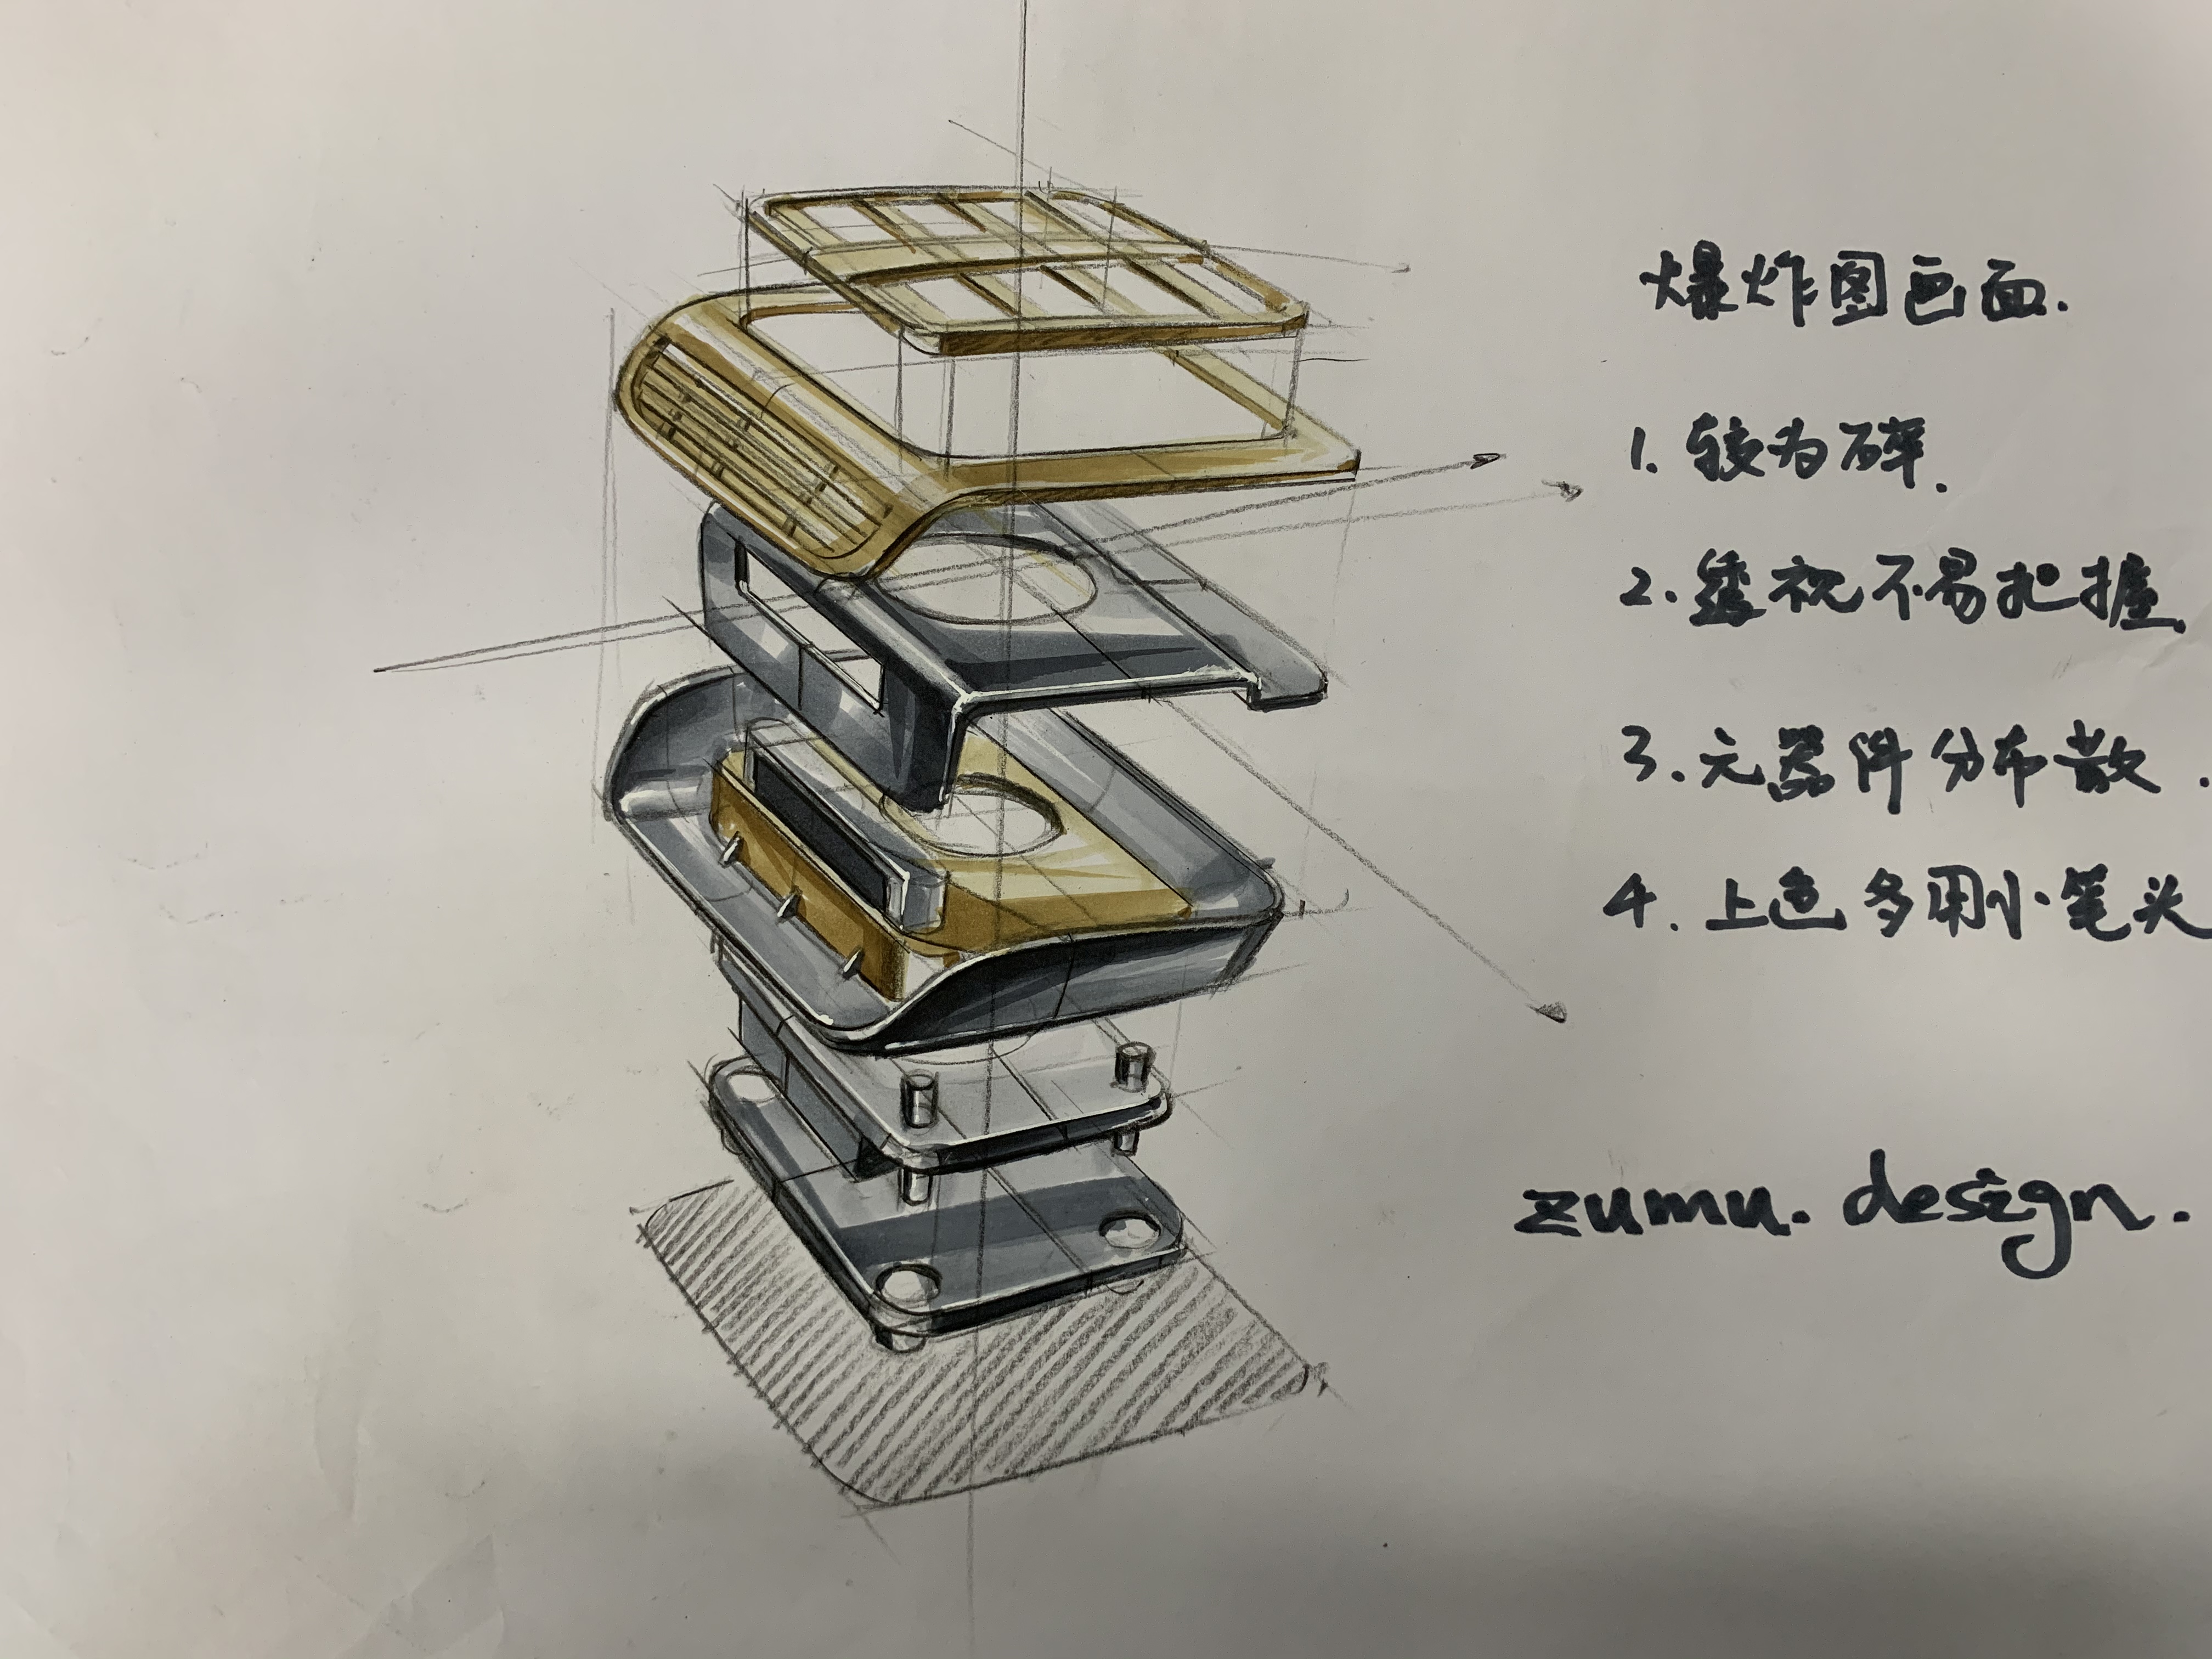 爆炸图画面.
1. 较为碎.
2. 透视不易把握.
3. 元器件分布散.
4. 上色多用小笔头
zumu. design.